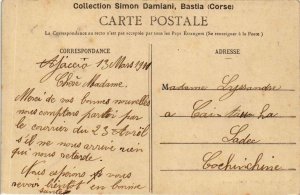 Collection Simon Damiani, Bastia (Corse)
CARTE POSTALE
La Correspondance au recto n'est pas acceptée par tous les Pays Étrangers (Se renseigner à la Poste)
CORRESPONDANCE
ADRESSE
Ajaccio 13 Mars 19
Chère Madame.
Merci de vos bonnes nouvelles
nous comptons partir par
le courrier du 23 avril
s'il ne nous arrive rien
qui nous retarde.
Nous espérons vous
revoir bientôt en bonne
santé
Madame
à
Sadec
Cochinchine